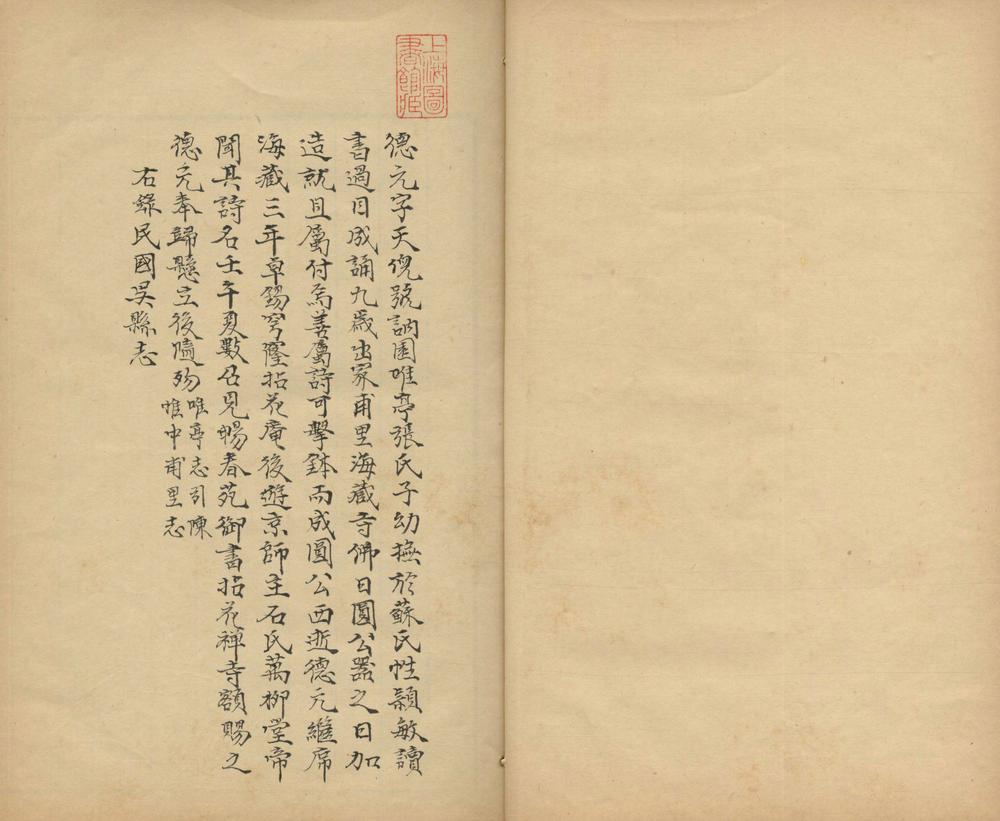 上海圖書館藏
德元字天倪號訥園唯亭張氏子幼撫於蘇氏性穎敏讀
書過目成誦九歲出家甫里海藏寺佛日圓公器之日加
造就且屬付焉善屬詩可擊鉢而成圓公西逝德元繼席
海藏三年卓錫穹窿拈花庵後遊京師主石氏萬柳堂帝
聞其詩名壬午夏數召見暢春苑御書拈花禪寺額賜之
德元奉歸懸立後隨歿
唯亭志引陳
惟中甫里志
右錄民國吳縣志